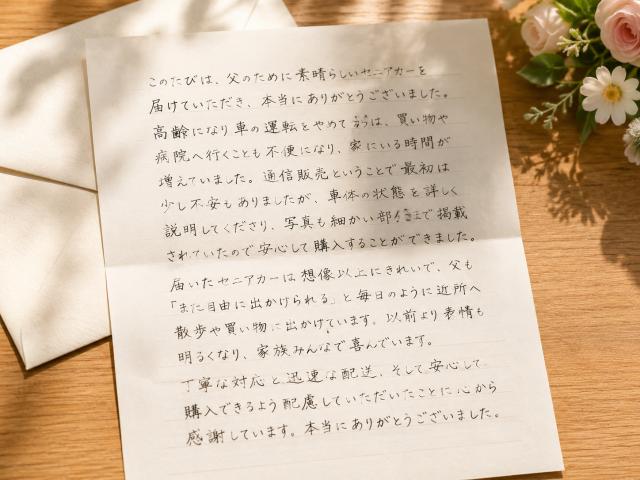 このたびは、父のために素晴らしいセニアカーを
届けていただき、本当にありがとうございました。
高齢になり車の運転をやめて は、買い物や
病院へ行くことも不便になり、家にいる時間が
増えていました。通信販売ということで最初は
少し不安もありましたが、車体の状態を詳しく
説明してくださり、写真も細かい部 まで掲載
されていたので安心して購入することができました。
届いたセニアカーは想像以上にきれいで、父も
「また自由に出かけられる」と毎日のように近所へ
散歩や買い物に出かけています。以前より表情も
明るくなり、家族みんなで喜んでいます。
丁寧な対応と迅速な配送、そして安心して
購入できるよう配慮していただいたことに心から
感謝しています。本当にありがとうございました。